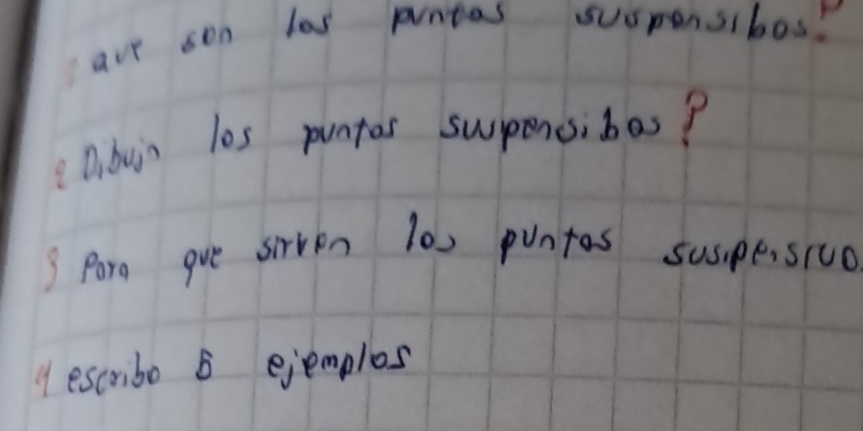 que son los puntos suspensibos?
2 Dibujo los puntos suspensibos?
3 Para que sirven los puntos suspensivo
4 escribo 5 ejemplos